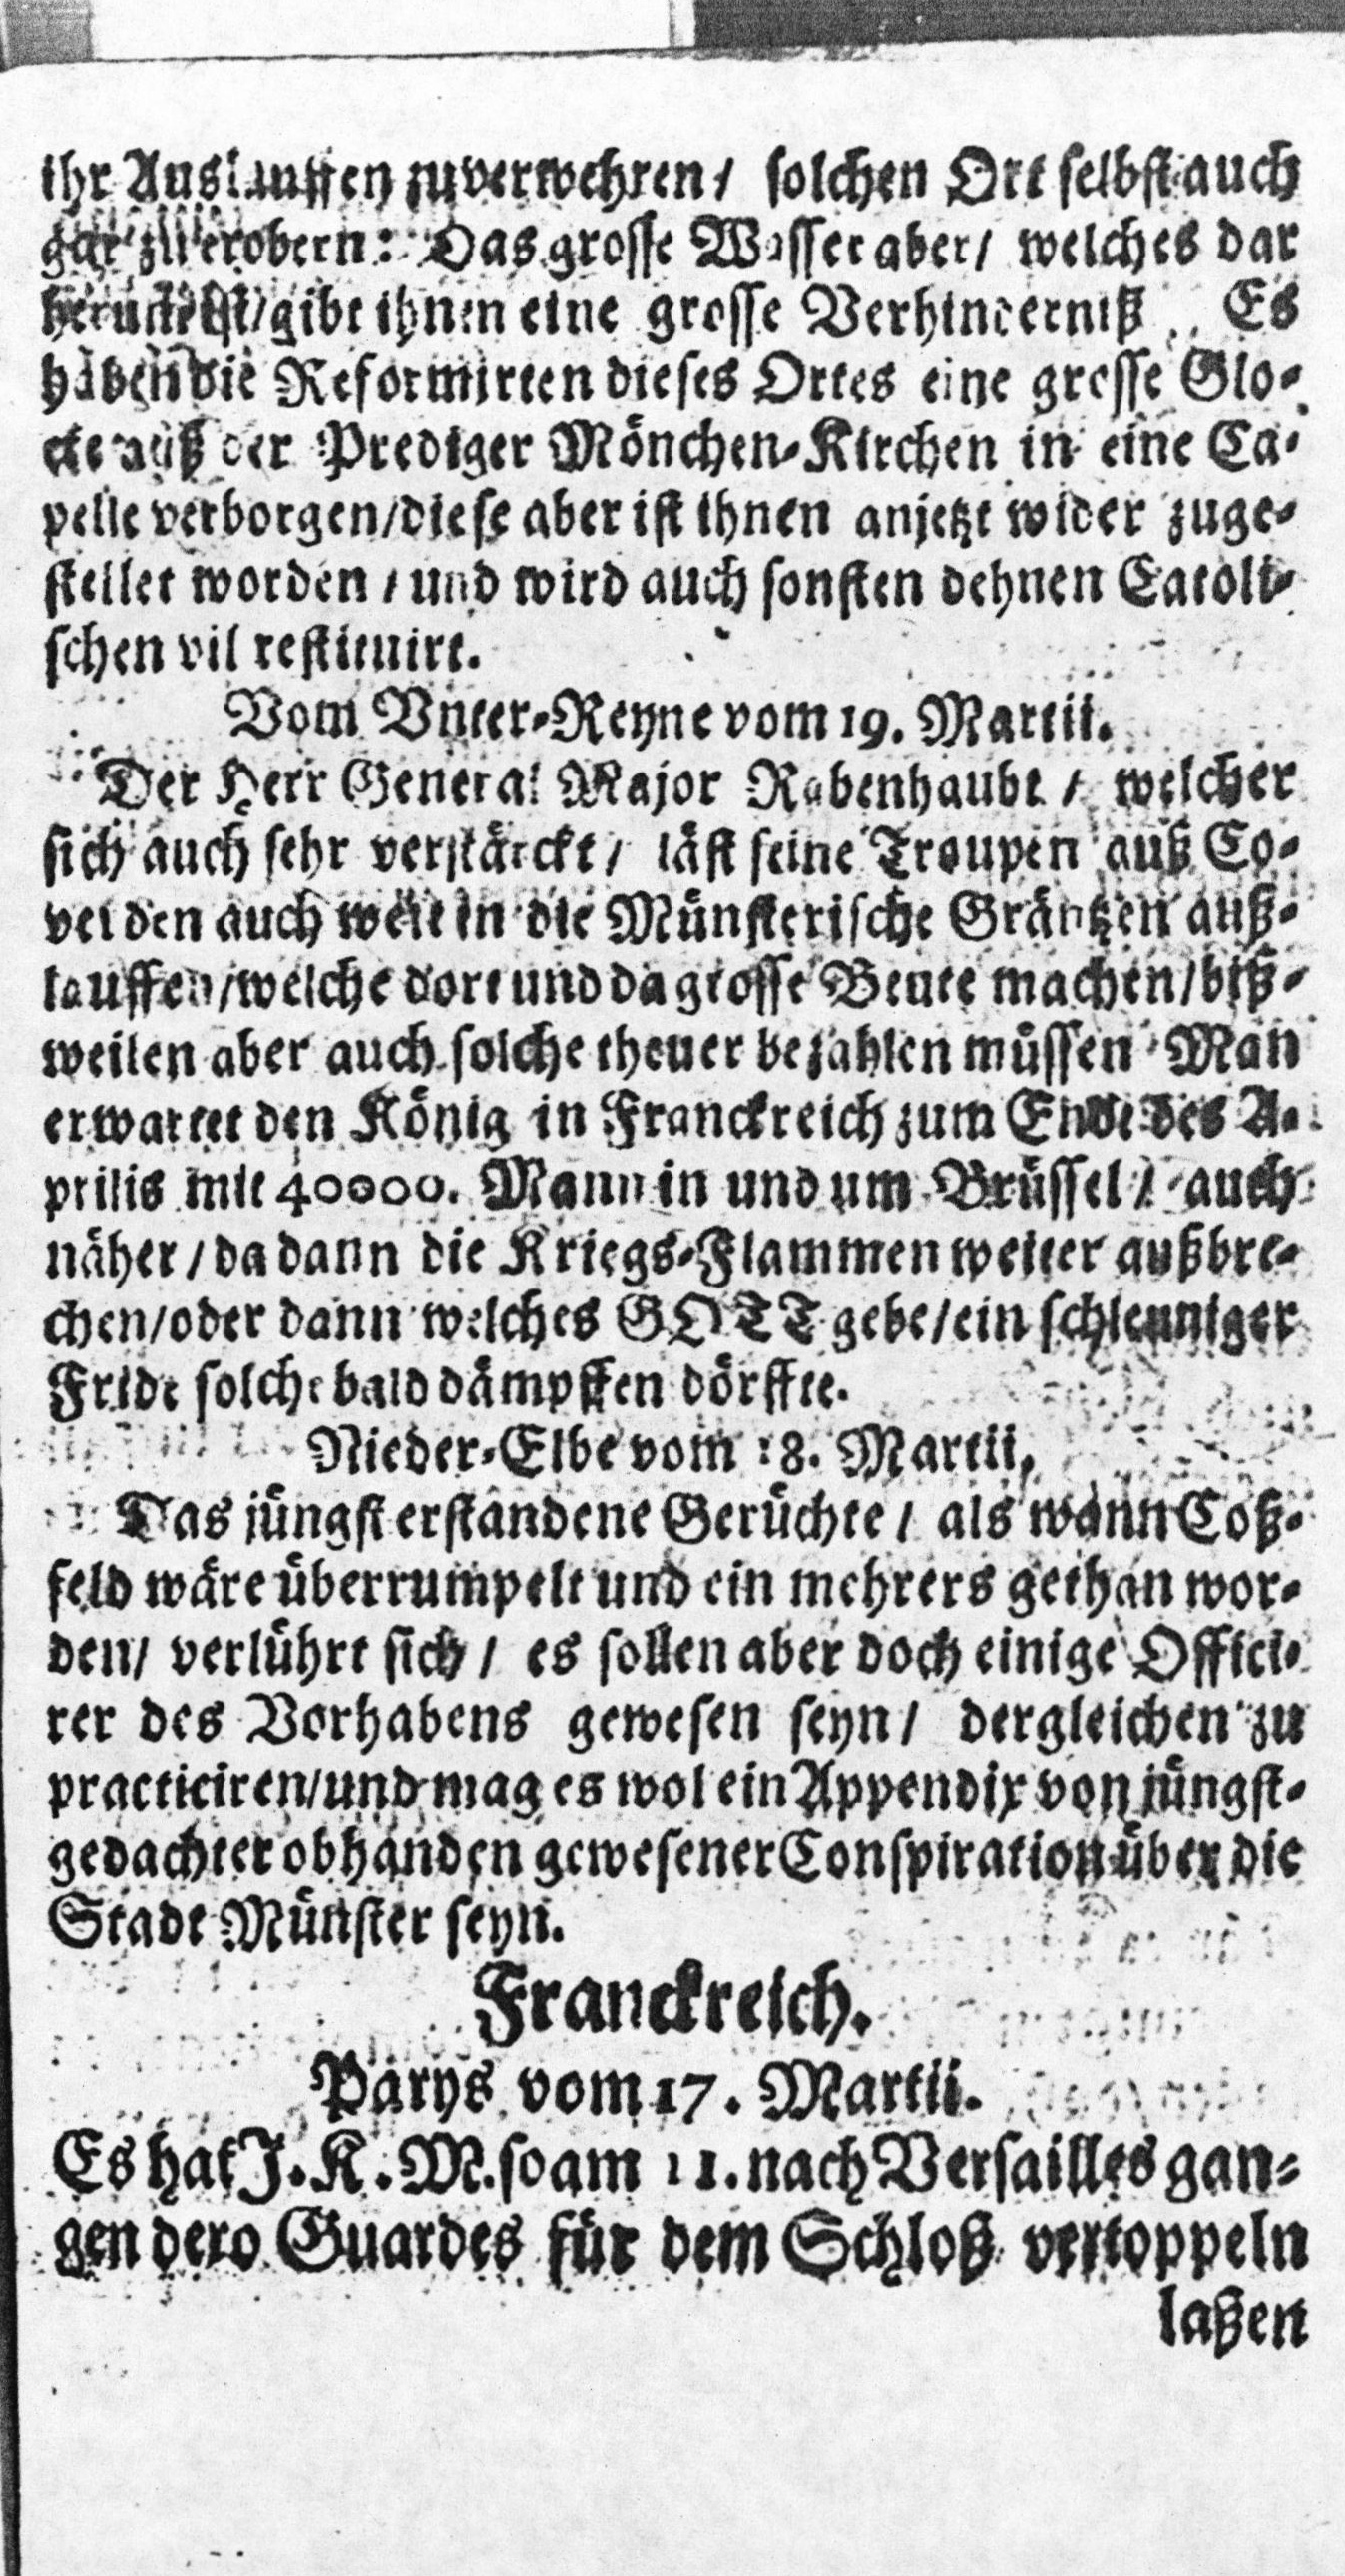 ihr Auslauffen zuverwehren / solchen Ort selbst auch
gar zu erobern: Das grosse Wasser aber / welches dar
gibt ihnen eine grosse Verhinderniß. Es
haben die Reformirten dieses Ortes eine grosse Glo-
cke auß der Prediger Mönchen-Kirchen in eine Ca-
pelle verborgen / diese aber ist ihnen anjetzt wider zuge-
stellet worden / und wird auch sonsten dehnen Catoli-
schen vil restituirt.
Vom Vnter-Reyne vom 19. Martii.
Der Herr General Major Rabenhaubt / welcher
sich auch sehr verstärckt / läst seine Troupen auß Co-
verden auch weit in die Münsterische Gräntzen auß-
lauffen / welche dort und da grosse Beute machen / biß-
weilen aber auch solche theuer bezahlen müssen Man
erwartet den König in Franckreich zum Ende des A-
prilis mit 40000. Mann in und um Brüssel / auch
näher / da dann die Kriegs-Flammen weiter außbre-
chen / oder dann welches GOTT gebe / ein schleuniger
Fride solche bald dämpffen dörffte.
Nieder-Elbe vom 18. Martii,
Das jüngst erstandene Gerüchte / als wann Coß-
feld wäre überrumpelt und ein mehrers gethan wor-
den / verlührt sich / es sollen aber doch einige Offici-
rer des Vorhabens gewesen seyn / dergleichen zu
practiciren / und mag es wol ein Appendix von jüngst-
gedachter obhanden gewesener Conspiration über die
Stadt Münster seyn.
Franckreich.
Parys vom 17. Martii.
Es hat J. K. M. so am 11. nach Versailles gan-
gen dero Guardes für dem Schloß vertoppeln
laßen